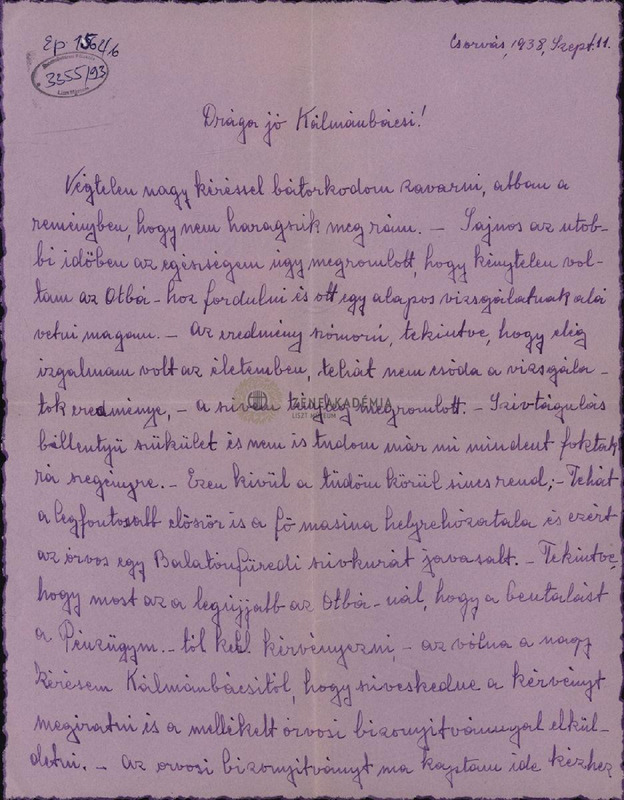 Ep 1564/6
3355/93
Csorvás, 1938, Szept. 11.
Drága jó Kálmánbácsi!
Végtelen nagy kéréssel bátorkodom zavarni, abban a
reményben, hogy nem haragszik meg rám. — Sajnos az utób-
bi időben az egészségem úgy megromlott, hogy kénytelen vol-
tam az Otbá-hoz fordulni és ott egy alapos vizsgálatnak alá
vetni magam. — Az eredmény szomorú, tekintve, hogy elég
izgalmam volt az életemben, tehát nem csóda a vizsgála-
tok eredménye, — a szívem tényleg megromlott. — Szívtágulás
billentyű szűkület és nem is tudom már mi mindent fogtak
rá szegényre. — Ezen kívül a tüdőm körül sincs rend; — Tehát
a legfontosabb először is a fő masina helyrehozatala és ezért
az orvos egy Balatonfüredi szívkurát javasalt. — Tekintve,
hogy most az a legújjabb az Otbá-nál, hogy a beutalást
a Pénzügym.-tól kell kérvényezni, — az vólna a nagy
kérésem Kálmánbácsitól, hogy szíveskedne a kérvényt
megiratni és a mellékelt orvosi bizonyítvánnyal elkül-
detni. — Az orvosi bizonyítványt ma kaptam ide kézhez
ZENEAKADÉMIA
LISZT MÚZEUM